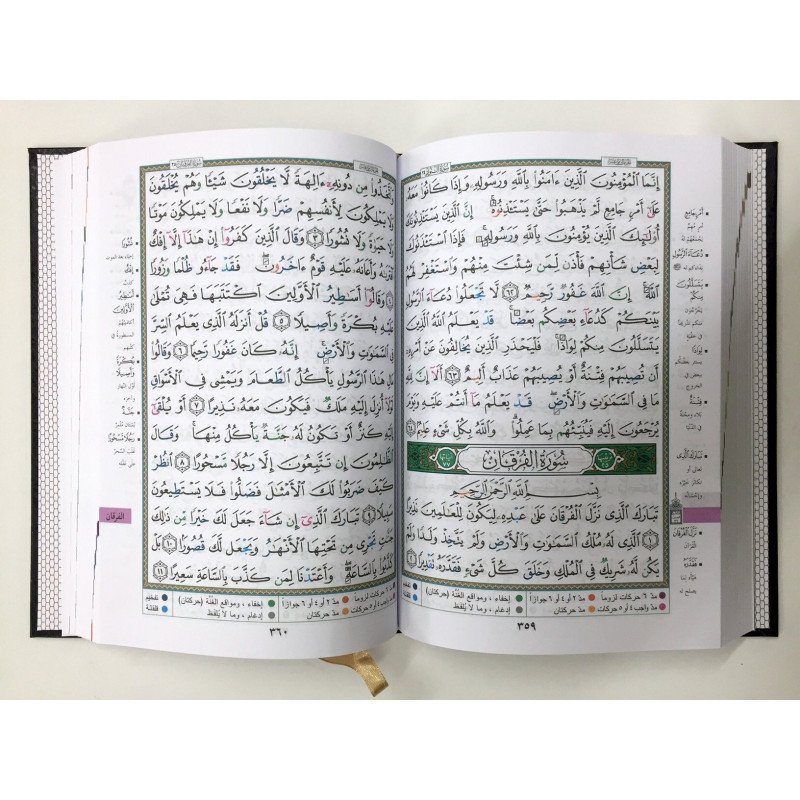 إِنَّمَا الْمُؤْمِنُونَ الَّذِينَ ءَامَنُوا بِاللَّهِ وَرَسُولِهِ وَإِذَا كَانُوا مَعَهُ
عَلَىٰ أَمْرٍ جَامِعٍ لَّمْ يَذْهَبُوا حَتَّىٰ يَسْتَـْٔذِنُوهُ إِنَّ الَّذِينَ يَسْتَـْٔذِنُونَكَ
أُو۟لَٰٓئِكَ الَّذِينَ يُؤْمِنُونَ بِاللَّهِ وَرَسُولِهِ فَإِذَا اسْتَـْٔذَنُوكَ
لِبَعْضِ شَأْنِهِمْ فَأْذَن لِّمَن شِئْتَ مِنْهُمْ وَاسْتَغْفِرْ لَهُمُ
اللَّهَ إِنَّ اللَّهَ غَفُورٌ رَّحِيمٌ ٦٢ لَّا تَجْعَلُوا دُعَاءَ الرَّسُولِ
بَيْنَكُمْ كَدُعَاءِ بَعْضِكُم بَعْضًا قَدْ يَعْلَمُ اللَّهُ الَّذِينَ
يَتَسَلَّلُونَ مِنكُمْ لِوَاذًا فَلْيَحْذَرِ الَّذِينَ يُخَالِفُونَ عَنْ أَمْرِهِ
أَن تُصِيبَهُمْ فِتْنَةٌ أَوْ يُصِيبَهُمْ عَذَابٌ أَلِيمٌ ٦٣ أَلَا إِنَّ لِلَّهِ
مَا فِي السَّمَٰوَٰتِ وَالْأَرْضِ قَدْ يَعْلَمُ مَا أَنتُمْ عَلَيْهِ وَيَوْمَ
يُرْجَعُونَ إِلَيْهِ فَيُنَبِّئُهُم بِمَا عَمِلُوا وَاللَّهُ بِكُلِّ شَيْءٍ عَلِيمٌ ٦٤
سُورَةُ الْفُرْقَانِ
بِسْمِ اللَّهِ الرَّحْمَٰنِ الرَّحِيمِ
تَبَارَكَ الَّذِي نَزَّلَ الْفُرْقَانَ عَلَىٰ عَبْدِهِ لِيَكُونَ لِلْعَٰلَمِينَ نَذِيرًا
١ الَّذِي لَهُ مُلْكُ السَّمَٰوَٰتِ وَالْأَرْضِ وَلَمْ يَتَّخِذْ وَلَدًا وَلَمْ
يَكُن لَّهُ شَرِيكٌ فِي الْمُلْكِ وَخَلَقَ كُلَّ شَيْءٍ فَقَدَّرَهُ تَقْدِيرًا ٢
مدّ ٦ حركات لزوماً مدّ ٢ أو ٤ أو ٦ جوازاً إخفاء، ومواقع الغُنَّة (حركتان) تفخيم
مدّ واجب ٤ أو ٥ حركات مدّ حركتان إدغام، وما لا يُلفظ قلقلة
٣٥٩
أَمْرٍ جَامِعٍ
دُعَاءَ الرَّسُولِ
يَتَسَلَّلُونَ مِنكُمْ
لِوَاذًا
فِتْنَةٌ
تَبَارَكَ الَّذِي
نَزَّلَ الْفُرْقَانَ
القرآن
وَاتَّخَذُوا مِن دُونِهِ ءَالِهَةً لَّا يَخْلُقُونَ شَيْـًٔا وَهُمْ يُخْلَقُونَ
وَلَا يَمْلِكُونَ لِأَنفُسِهِمْ ضَرًّا وَلَا نَفْعًا وَلَا يَمْلِكُونَ مَوْتًا
وَلَا حَيَوٰةً وَلَا نُشُورًا ٣ وَقَالَ الَّذِينَ كَفَرُوا إِنْ هَٰذَا إِلَّا إِفْكٌ
افْتَرَىٰهُ وَأَعَانَهُ عَلَيْهِ قَوْمٌ ءَاخَرُونَ فَقَدْ جَاءُو ظُلْمًا وَزُورًا
٤ وَقَالُوا أَسَٰطِيرُ الْأَوَّلِينَ اكْتَتَبَهَا فَهِيَ تُمْلَىٰ
عَلَيْهِ بُكْرَةً وَأَصِيلًا ٥ قُلْ أَنزَلَهُ الَّذِي يَعْلَمُ السِّرَّ
فِي السَّمَٰوَٰتِ وَالْأَرْضِ إِنَّهُ كَانَ غَفُورًا رَّحِيمًا ٦ وَقَالُوا
مَالِ هَٰذَا الرَّسُولِ يَأْكُلُ الطَّعَامَ وَيَمْشِي فِي الْأَسْوَاقِ
لَوْلَا أُنزِلَ إِلَيْهِ مَلَكٌ فَيَكُونَ مَعَهُ نَذِيرًا ٧ أَوْ يُلْقَىٰ
إِلَيْهِ كَنزٌ أَوْ تَكُونُ لَهُ جَنَّةٌ يَأْكُلُ مِنْهَا وَقَالَ
الظَّٰلِمُونَ إِن تَتَّبِعُونَ إِلَّا رَجُلًا مَّسْحُورًا ٨ انظُرْ
كَيْفَ ضَرَبُوا لَكَ الْأَمْثَٰلَ فَضَلُّوا فَلَا يَسْتَطِيعُونَ
سَبِيلًا ٩ تَبَارَكَ الَّذِي إِن شَاءَ جَعَلَ لَكَ خَيْرًا مِّن ذَٰلِكَ
جَنَّٰتٍ تَجْرِي مِن تَحْتِهَا الْأَنْهَٰرُ وَيَجْعَل لَّكَ قُصُورًا ١٠ بَلْ
كَذَّبُوا بِالسَّاعَةِ وَأَعْتَدْنَا لِمَن كَذَّبَ بِالسَّاعَةِ سَعِيرًا ١١
مدّ ٦ حركات لزوماً مدّ ٢ أو ٤ أو ٦ جوازاً إخفاء، ومواقع الغُنَّة (حركتان) تفخيم
مدّ واجب ٤ أو ٥ حركات مدّ حركتان إدغام، وما لا يُلفظ قلقلة
٣٦٠
نُشُورًا
إِفْكٌ
كذب
أَسَٰطِيرُ
الْأَوَّلِينَ
بُكْرَةً
وَأَصِيلًا
جَنَّةٌ
رَجُلًا مَّسْحُورًا
الفرقان